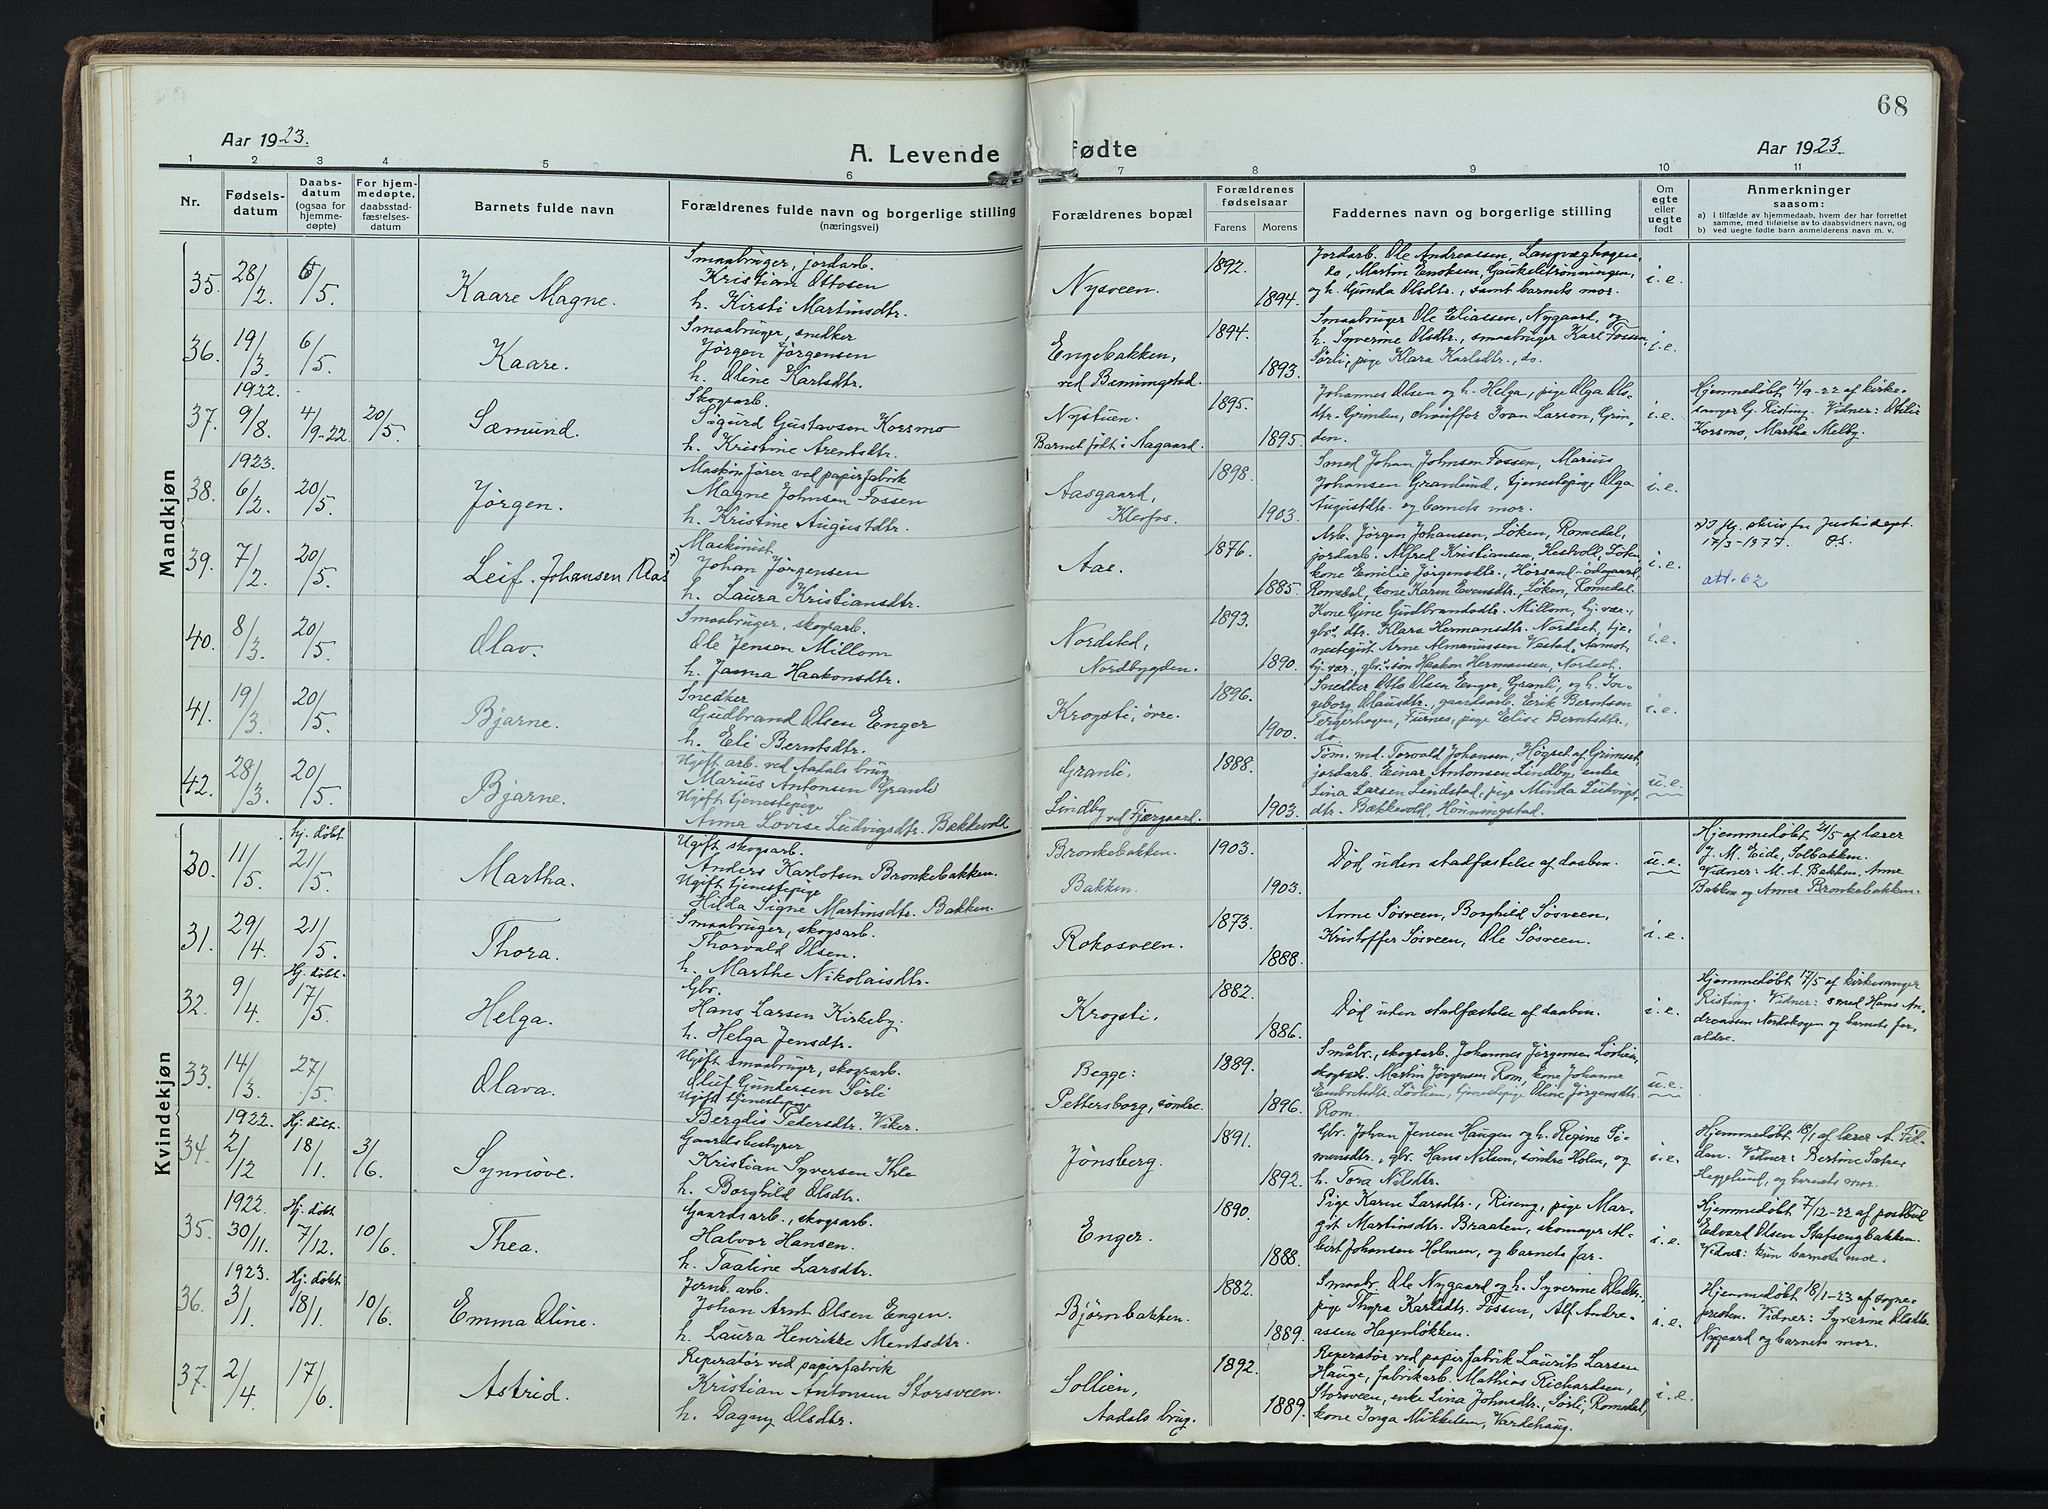 68
Aar 1923.
A. Levende fødte
Aar 1923.
1 2 3 4 5 6 7 8 9 10 11
Nr.
Fødsels-
datum
Daabs-
datum
(ogsaa for
hjemme-
døpte)
For hjem-
medøpte,
daabsstad-
fæstelses-
datum
Barnets fulde navn
Forældrenes fulde navn og borgerlige stilling
(næringsvei)
Forældrenes bopæl
Forældrenes
fødselsaar
Farens Morens
Faddernes navn og borgerlige stilling
Om
egte
eller
uegte
født
Anmerkninger
saasom:
a) I tilfælde av hjemmedaab, hvem der har forrettet
samme, med tilføielse av to daabsvidners navn, og
b) ved uegte fødte barn anmelderens navn m. v.
Mandkjøn
35. 28/2 6/5 Kaare Magne.
Smaabruger, jordarb.
Kristian Ottosen
h. Kirsti Martinsdtr.
Nysveen.
1892.
1894.
Jordarb. Ole Andreassen, Langvæghagen,
do, Martin Enoksen, Gaukelitrønningen,
og h. Gunda Olsdtr., samt barnets mor.
i.e.
36. 19/3. 6/5. Kaare.
Smaabruger, snedker
Jørgen Jørgensen
h. Oline Karlsdtr.
Engebakken,
ved
1894.
1893.
Smaabruger Ole Eliassen, Nygaard, og
h. Syverine Olsdtr., smaabruger Karl Fossen,
Sørli, pige Klara Karlsdtr., do.
i.e.
37. 1922. 9/8. 4/9-22 20/5. Sæmund.
Skogsarb.
Sigurd Gustavsen Korsmo
h. Kristine Arentsdtr.
Nystuen.
Barnet født i Aagaard.
1895.
1895.
Johannes Olsen og h. Helga, pige Olga Ols-
dtr. Grinden, chauffør Ivan Larson, Grin-
den.
i.e.
Hjemmedøbt 4/9-22 af kirke-
sanger G. Risting. Vidner: Otelie
Korsmo, Martha Melby.
38. 1923. 6/2. 20/5. Jørgen.
Maskinfører ved papirfabrik
Magne Johnsen Fossen
h. Kristine Augustdtr.
Aasgaard,
Klevfos.
1898.
1903.
Smed Johan Johnsen Fossen, Marius
Johansen Granlund, tjenestepige Olga
Augustdtr. og barnets mor.
i.e.
39. 7/2 20/5. Leif. Johansen Aas
Maskinist
Johan Jørgensen
h. Laura Kristiansdtr.
Aas.
1876.
1885.
Arb. Jørgen Johansen, Løken, Romedal,
jordarb. Alfred Kristiansen, Hestvoll, Løken
kone Emilie Jørgensdtr., Hørsand-ødegaard,
Romedal, kone Karen Evensdtr., Løken, Romedal.
i.e.
flg. skriv fra Justisdept.
17/3-1977. OS.
att. 62
40. 8/3. 20/5. Olav.
Smaabruger, skogsarb.
Ole Jensen Millom
h. Jasma Haakonsdtr.
Nordstad,
Nordbygden.
1893.
1890.
Kone Gine Gudbrandsdtr. Millom, hj. vær.,
gbr. dtr. Klara Hermansdtr. Nordset, tje-
nestegut Arne Almanussen Vestad, Aamot,
hj. vær., gbr. søn Haakon Hermansen, Nordset.
i.e.
41. 19/3. 20/5. Bjarne.
Snedker
Gudbrand Olsen Enger
h. Eli Berntsdtr.
Krogsti, øvre.
1896.
1900.
Snedker Otto Olsen Enger, Granli, og h. In-
geborg Olausdtr., gaardsarb. Erik Berntsen
Tergerhagen, Furnes, pige Elise Berntsdtr.,
do.
i.e.
42. 28/3. 20/5. Bjarne.
Ugift arb. ved Aadals brug
Marius Antonsen Granli
Ugift tjenestepige
Anna Lovise Ludvigsdtr. Bækkevold
Granli,
Lindby ved Fjærgaard.
1888.
1903.
Tøm. md. Torvald Johansen, Høgset af Grimset,
jordarb. Einar Antonsen Lindby, enke
Lina Larsen Lindstad, pige Minda Ludvigs-
dtr. Bækkevold, Hønningstad.
u.e.
Kvindekjøn
30. 11/5. hj. døbt 21/5. Martha.
Ugift skogsarb.
Anders Karlotsen Bronkebakken.
Ugift tjenestepige
Hilda Signe Martinsdtr. Bakken.
Bronkebakken.
Bakken.
1903.
1903.
Død uden stadfæstelse af daaben.
u.e.
Hjemmedøbt 21/5 af lærer
J. M. Eide, Solbakken.
Vidner: M. A. Bakken, Anne
Bakken og Anne Bronkebakken.
31. 29/4. 21/5. Thora.
Smaabruger, skogsarb.
Thorvald Olsen.
h. Marthe Nikolaisdtr.
Rokosveen.
1873.
1888.
Anne Søsveen, Borghild Søsveen,
Kristoffer Søsveen, Ole Søsveen.
i.e.
32. 9/4. Hj. døbt. 17/5. Helga.
Gbr.
Hans Larsen Kirkeby.
h. Helga Jensdtr.
Krogsti.
1882.
1886.
Død uden stadfæstelse af daaben.
i.e.
Hjemmedøbt 17/5 af kirkesanger
Risting. Vidner: smed Hans An-
dreassen Nordskogen og barnets for-
ældre.
33. 14/3. 27/5. Olava.
Ugift smaabruger, skogsarb.
Oluf Gundersen Sørli
Ugift tjenestepig
Bergdis Petersdtr. Viker.
Begge:
Pettersborg, søndre.
1889.
1896.
Småbr., skogsarb. Johannes Jørgensen Løvlien,
skogsarb. Martin Jørgensen Rom, kone Johanne
Embretsdtr. Løvlien, tjenestepige Oline Jørgensdtr.
Rom.
u.e.
34. 1922. 2/12 Hj. døbt. 18/1. 3/6. Synnøve.
Gaardsbestyrer
Kristian Syversen Ihle
h. Borghild Olsdtr.
Jønsberg.
1891.
1892.
Gbr. Johan Jensen Haugen og h. Regine Si-
mensdtr., gbr. Hans Nilsen, søndre Holen, og
h. Tora Nilsdtr.
i.e.
Hjemmedøbt 18/1 af lærer A. Til-
dan. Vidner: Bertine Sætre
Heggelund, og barnets mor.
35. 1922. 30/11. Hj. døbt 7/12. 10/6. Thea.
Gaardsarb., skogsarb.
Halvor Hansen.
h. Taaline Larsdtr.
Enger.
1890.
1888.
Pige Karen Larsdtr., Riseng, pige Mar-
git Martinsdtr. Braaten, skomager Al-
bert Johansen Holmen, og barnets far.
i.e.
Hjemmedøbt 7/12-22 af postbud
Edvard Olsen Stafsengbakken.
Vidner: kun barnets mor.
36. 1923. 3/1. Hj. døbt 18/1. 10/6. Emma Oline.
Jernb. arb.
Johan Arnt Olsen Engen.
h. Laura Henrikke Mentsdtr.
Bjørnbakken.
1882.
1889.
Smaabr. Ole Nygaard og h. Syverine Olsdtr.,
pige Thyra Karlsdtr. Fossen, Alf Andre-
assen Hagenløkken.
i.e.
Hjemmedøbt 18/1-23 af sogne-
presten. Vidner: Syverine Olsdtr.
Nygaard og barnets mor.
37. 2/4. 17/6. Astrid.
Reperatør ved papirfabrik
Kristian Antonsen Storsveen.
h. Dagny Olsdtr.
Sollien,
Aadals brug.
1892.
1889.
Reperatør ved papirfabrik Laurits Larsen
Hauge, fabrikarb. Mathias Richardsen,
Storsveen, enke Lina Johnsdtr., Sørli, Romedal,
kone Inga Mikkelsen, Vardehaug.
i.e.